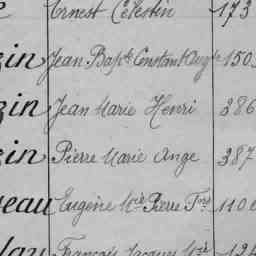 Ernest Célestin 173
zin Jean Bapte Constant Auguste 150
zin Jean Marie Henri 386
zin Pierre Marie Ange 387
eau Eugène Mie Pierre Fois 110
lau François Jacques Mie 124